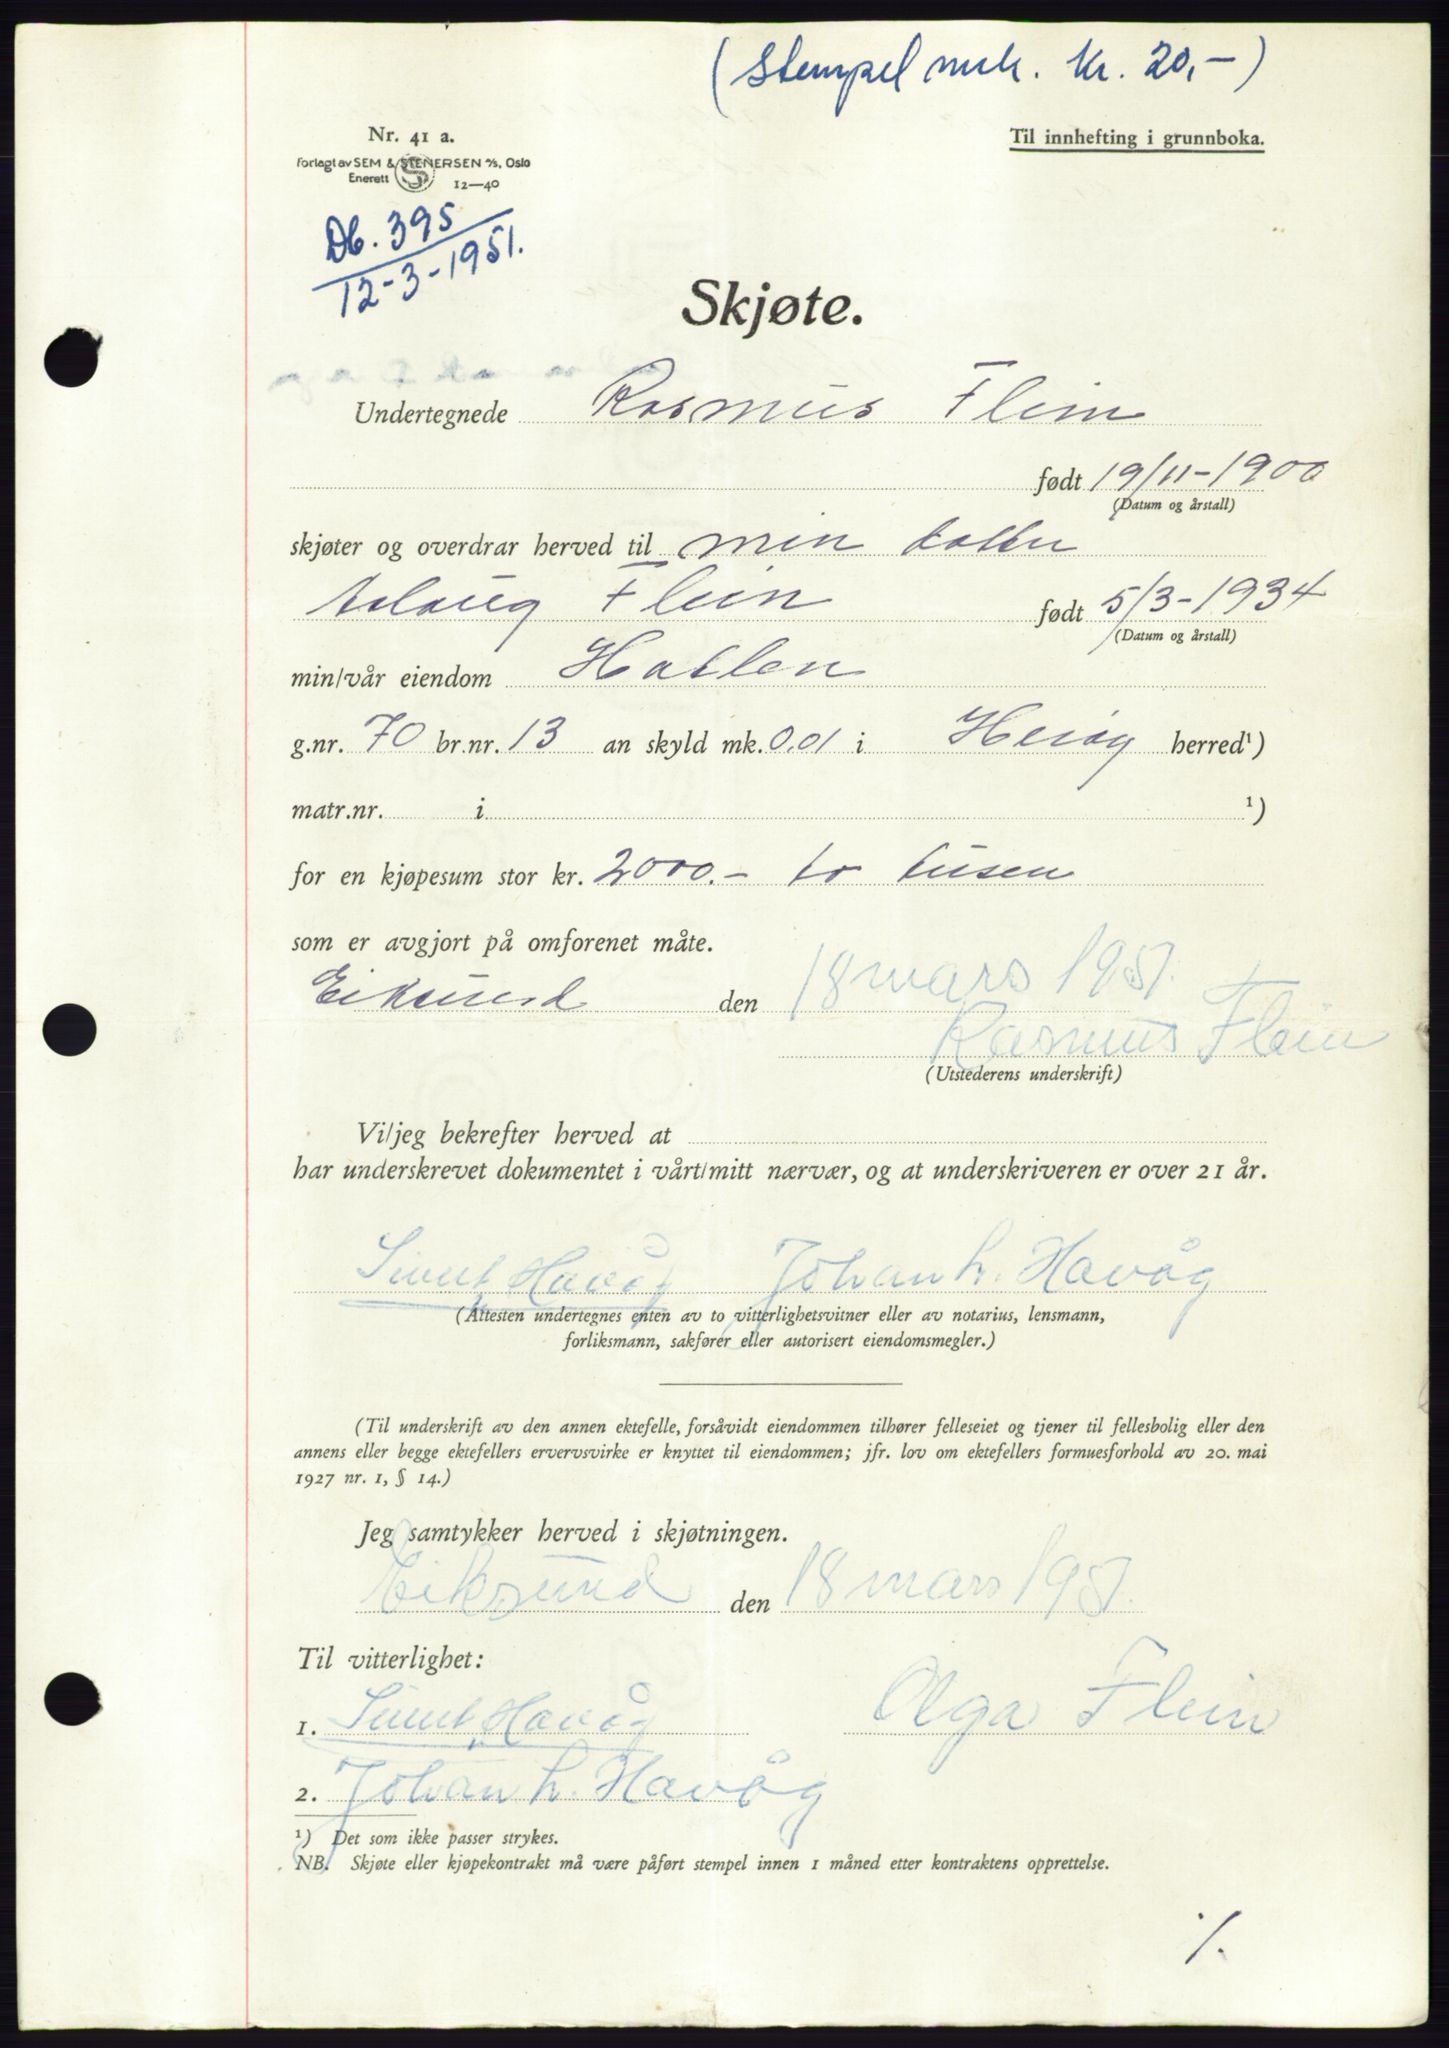 (Stempel mrk. kr. 20,-)
Nr. 41 a.
Til innhefting i grunnboka.
Forlagt av SEM & STENERSEN A/S, Oslo
Enerett S 12—40
Db. 395
12-3-1951.
Skjøte.
Undertegnede Rasmus Flein
født 19/11-1900
(Datum og årstall)
skjøter og overdrar herved til min datter
Aslaug Flein født 5/3-1934
(Datum og årstall)
min/vår eiendom Hatlen
g.nr. 70 br.nr. 13 an skyld mk. 0,01 i Herøy herred¹)
matr.nr. i ¹)
for en kjøpesum stor kr. 2000.- to tusen
som er avgjort på omforenet måte.
Eiksund den 18 mars 1951.
Rasmus Flein
(Utstederens underskrift)
Vi/jeg bekrefter herved at
har underskrevet dokumentet i vårt/mitt nærvær, og at underskriveren er over 21 år.
Sivert Havåg Johan L. Havåg
(Attesten undertegnes enten av to vitterlighetsvitner eller av notarius, lensmann,
forliksmann, sakfører eller autorisert eiendomsmegler.)
(Til underskrift av den annen ektefelle, forsåvidt eiendommen tilhører felleseiet og tjener til fellesbolig eller den
annens eller begge ektefellers ervervsvirke er knyttet til eiendommen; jfr. lov om ektefellers formuesforhold av 20. mai
1927 nr. 1, § 14.)
Jeg samtykker herved i skjøtningen.
Eiksund den 18 mars 1951.
Til vitterlighet:
1. Sivert Havåg Olga Flein
2. Johan L. Havåg
¹) Det som ikke passer strykes.
NB. Skjøte eller kjøpekontrakt må være påført stempel innen 1 måned etter kontraktens opprettelse.
·/.